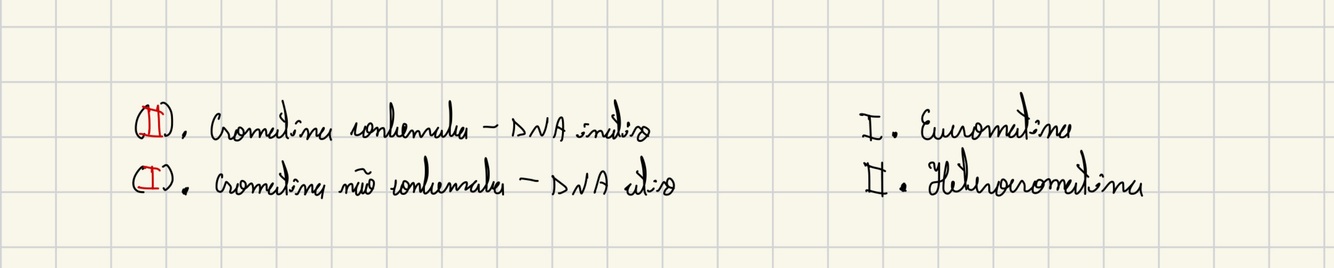 (II). Cromatina condensada - DNA inativo
(I). Cromatina não condensada - DNA ativo
I. Eucromatina
II. Heterocromatina